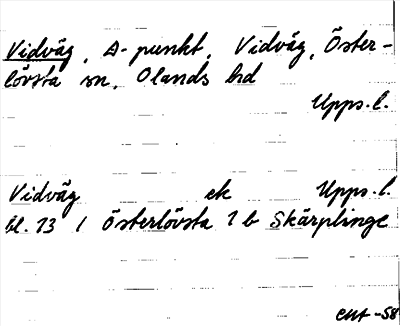 Vidväg, A-punkt, Vidväg, Öster-
lövsta sn, Olands hd
Upps. l.
Vidväg ek Upps. l.
bl. 13 I Österlövsta 1 b Skärplinge
-58